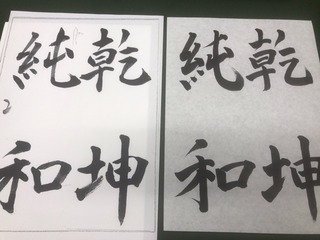 乾坤
純和
2
乾坤
純和